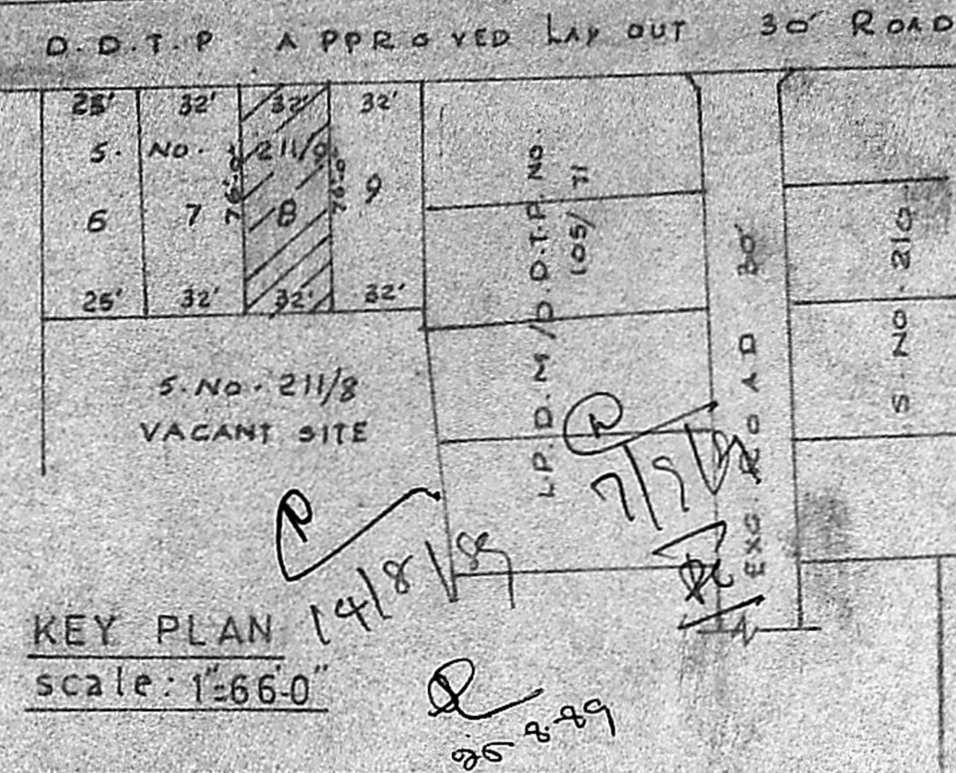 D.D.T.P APPROVED LAY OUT 30' ROAD
25' 32' 32' 32'
S. NO. 211/9
76'-0" 76'-0"
6 7 8 9
25' 32' 32' 32'
S.No. 211/8
VACANT SITE
L.P. D.M/D.D.T.P. NO.
105/71
EXG. ROAD 30'
S.NO. 210
14/8/89
7/9/
KEY PLAN
scale: 1"=66'-0"
25-8-89